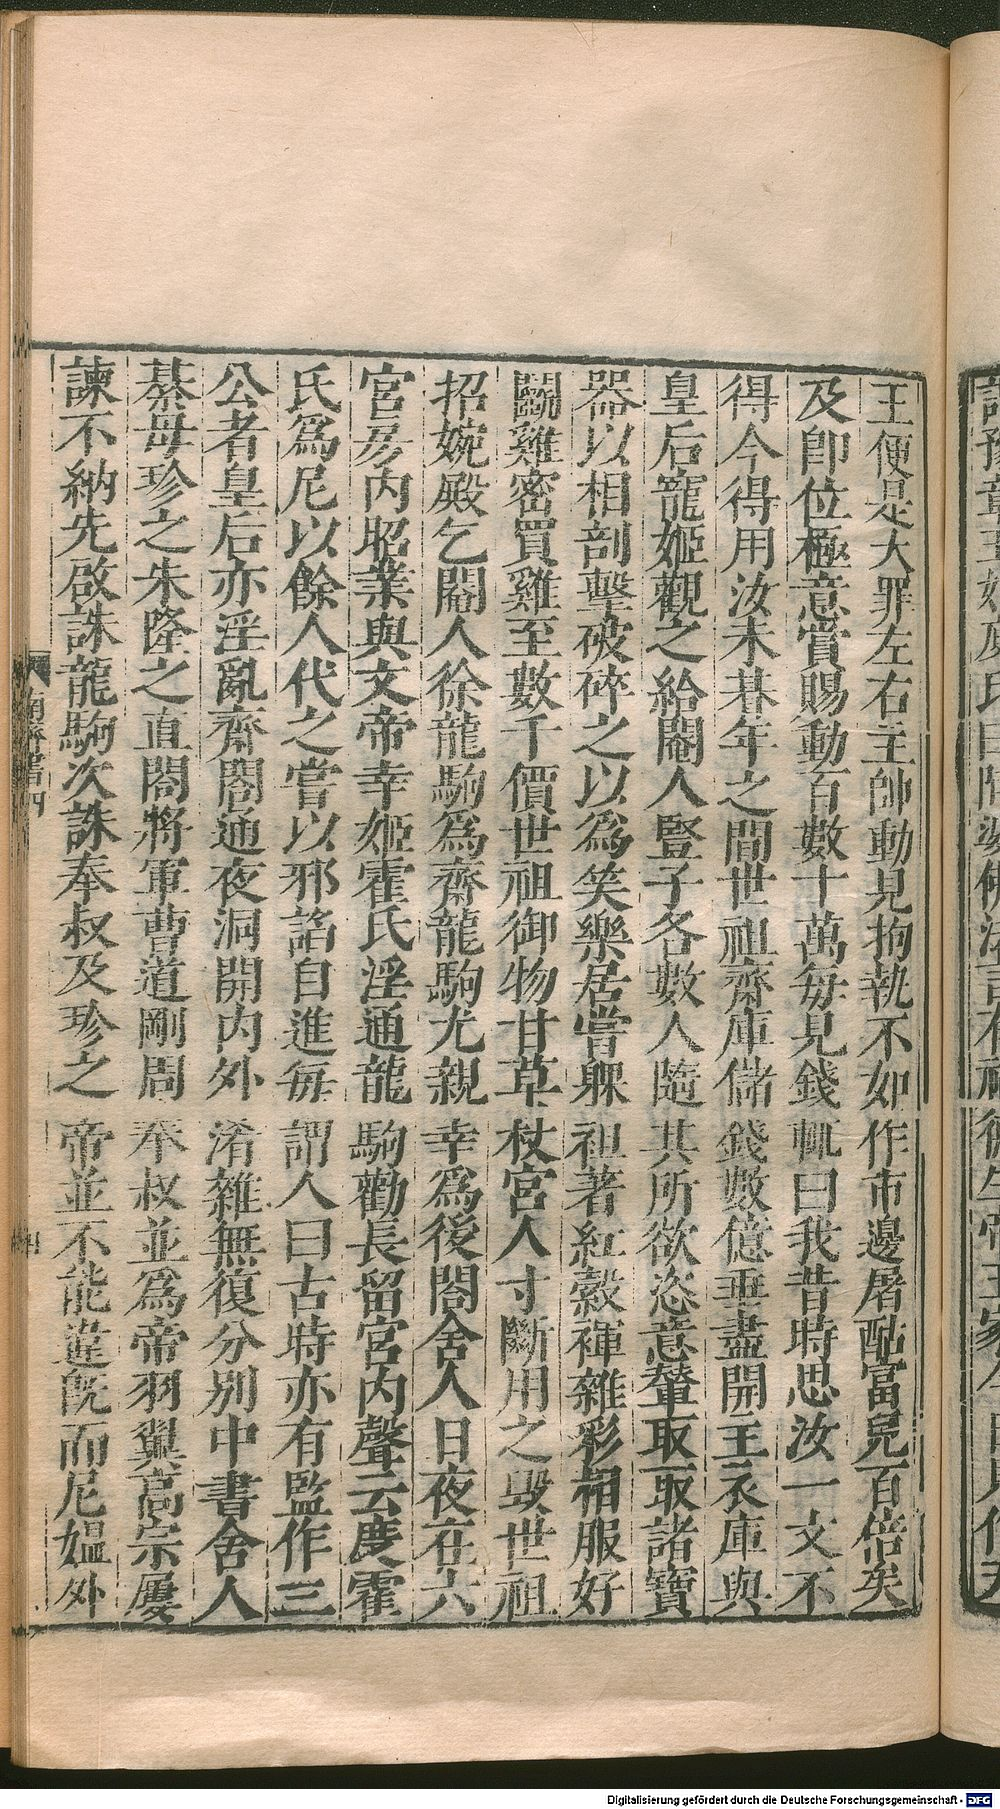 王便是大罪左右主帥動見拘執不如作市邊屠酤富兒百倍矣
及卽位極意賞賜動百數十萬每見錢輒曰我昔時思汝一文不
得今得用汝未朞年之間世祖齋庫儲錢數億垂盡開主衣庫與
皇后寵姬觀之給閹人豎子各數人隨其所欲恣意輦取取諸寶
器以相剖擊破碎之以爲笑樂居嘗躶袒著紅縠褌雜彩相服好
鬬雞密買雞至數千價世祖御物甘草杖宮人寸斷用之毁世祖
招婉殿乞閹人徐龍駒爲齋龍駒尤親幸爲後閤舍人日夜在六
宮房內昭業與文帝幸姬霍氏淫通龍駒勸長留宮內聲云度霍
氏爲尼以餘人代之嘗以邪諂自進每謂人曰古時亦有監作三
公者皇后亦淫亂齋閤通夜洞開內外淆雜無復分別中書舍人
綦毋珍之朱隆之直閤將軍曹道剛周奉叔並爲帝羽翼高宗屢
諫不納先啟誅龍駒次誅奉叔及珍之帝並不能違旣而尼媼外
南齊書四
Digitalisierung gefördert durch die Deutsche Forschungsgemeinschaft - DFG